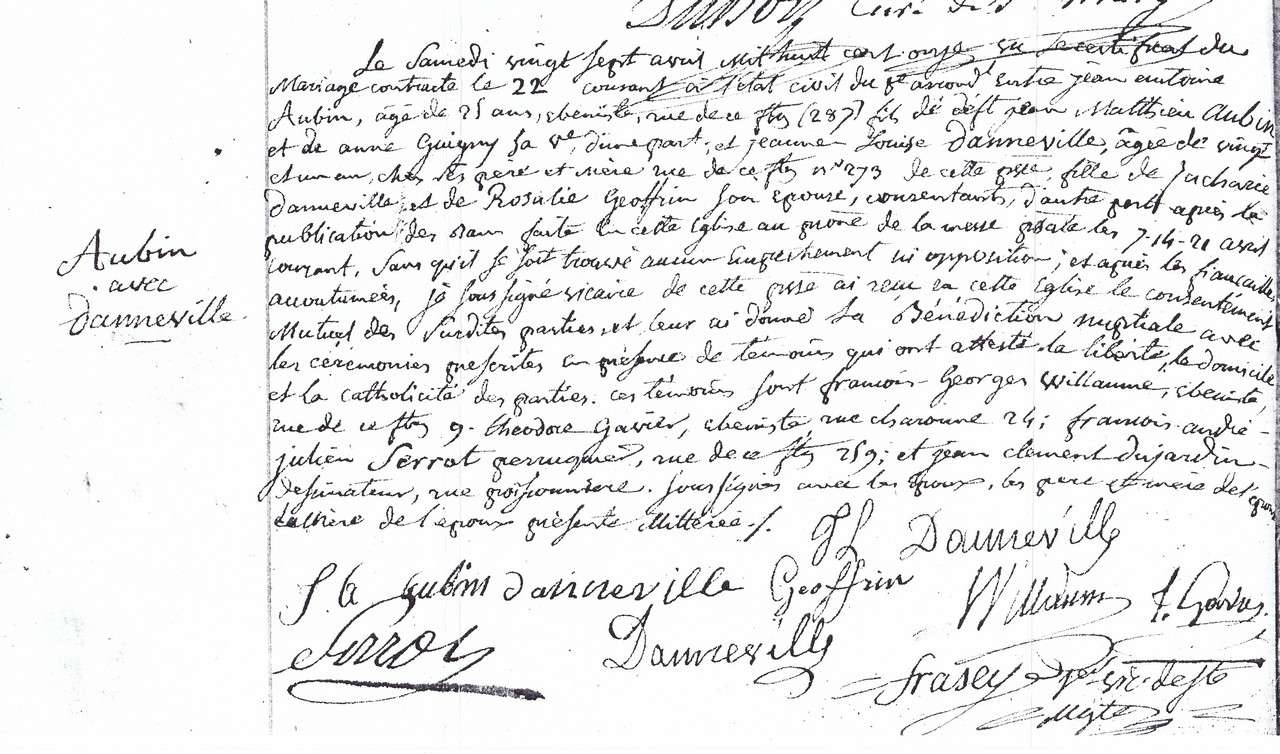 Curé de Ste Marg
Le Samedi vingt sept avril mil huit cent onze, vu le certificat du
Mariage contracté le 22 courant à l'état civil du 8e arrond.t entre jean antoine
Aubin, âgé de 25 ans, ebéniste, rue de ce fbg (287) fils de deft jean Matthieu Aubin
et de anne Guigny sa ve, d'une part; et jeanne Louise Danneville, âgée de vingt
et un an, chez ses père et mère rue de ce fbg n° 273 de cette psse, fille de Zacharie
Danneville et de Rosalie Geoffrin son épouse, consentants, d'autre part après la
publication des bans faite en cette Eglise au prône de la messe pssale les 7-14-21 avril
courant, sans qu'il se soit trouvé aucun Empechement ni opposition; et après les fiancailles
accoutumées, je soussigné vicaire de cette psse ai reçu en cette Eglise le consentement
Mutuel des Susdites parties, et leur ai donné la Bénédiction nuptiale avec
les cérémonies prescrites en présence de témoins qui ont attesté la liberté, le domicile
et la catholicité des parties. ces témoins sont francois Georges Willaume, ebeniste,
rue de ce fbg 9. théodore Gavier, ebeniste, rue charonne 24; francois andré-
julien Serrot perruquier, rue de ce fbg 259; et jean clement dujardin-
dessinateur, rue poissonniere. soussignés avec les époux, les père et mère de l'épouse
la Mère de l'époux présente illitérée ./.
Aubin
avec
Danneville
JL Danneville
J. a aubin danneville Geoffrin
Willaum f. Gavier
Serrot
Danneville
frasey per vic. de Ste
Mgte